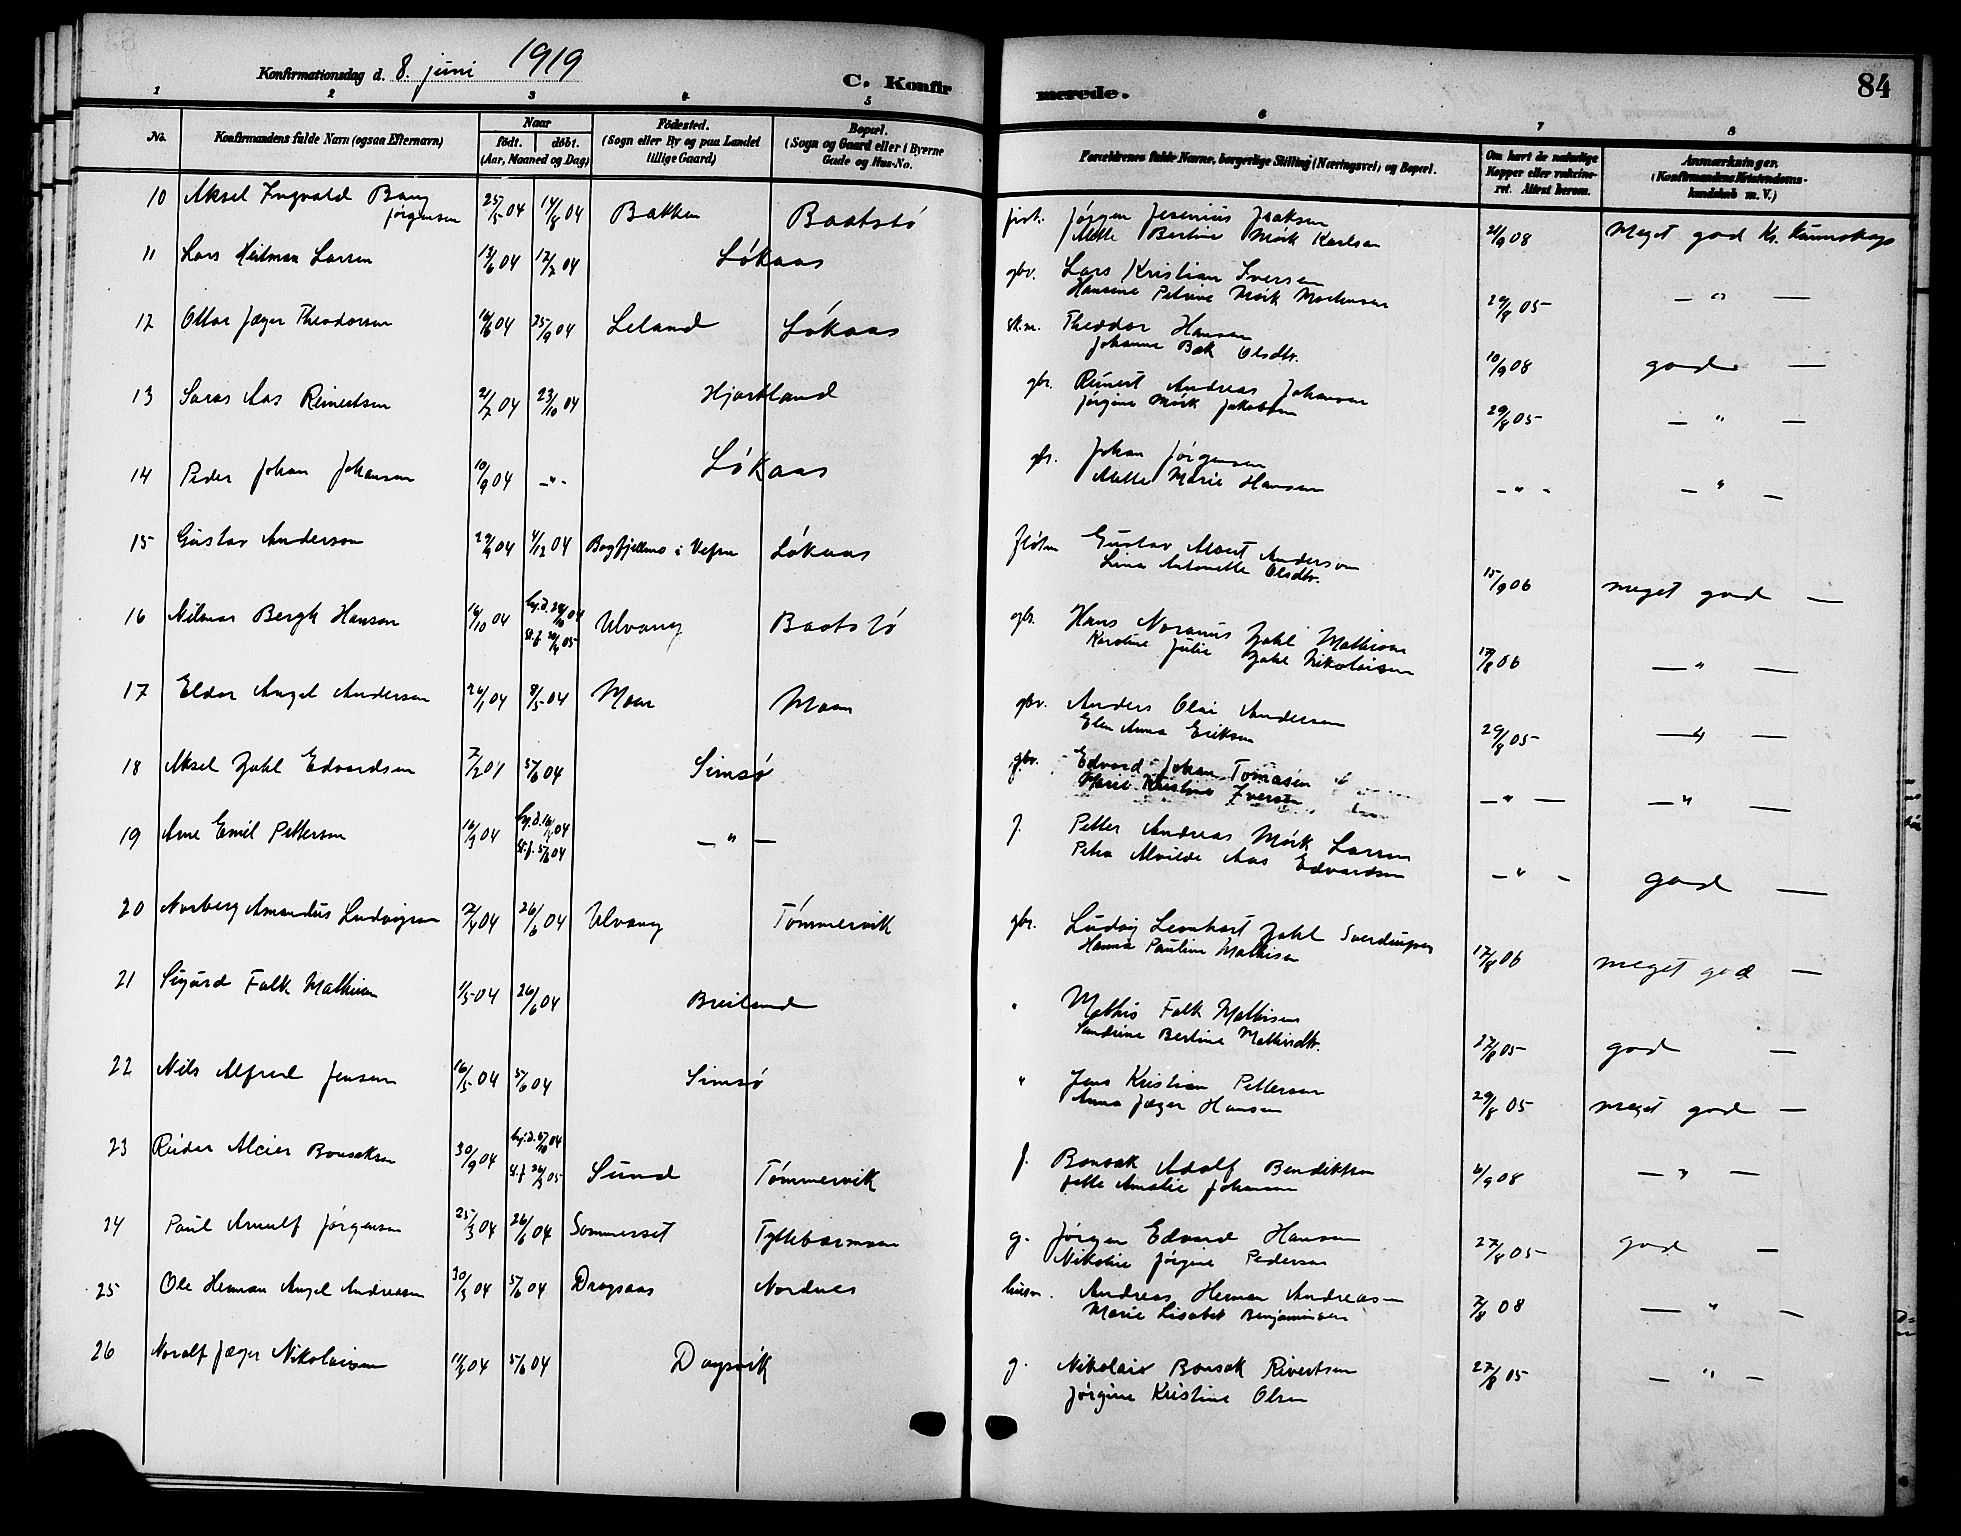 Konfirmationsdag d. 8. juni 1919
C. Konfirmerede.
84
1 2 3 4 5 6 7 8
No.
Konfirmandens fulde Navn (ogsaa Efternavn)
Naar
født. døbt.
(Aar, Maaned og Dag)
Fødested.
(Sogn eller By og paa Landet tillige Gaard)
Bopæl.
(Sogn og Gaard eller i Byerne Gade og Hus-No.
Forældrenes fulde Navne, borgerlige Stilling (Næringsvei) og Bopæl.
Om havt de naturlige Kopper eller vaccineret. Attest herom.
Anmærkninger.
(Konfirmandens Kristendomskundskab m. V.)
10 Aksel Ingvald Bang Jørgensen 25/5 04 14/8 04 Bakken Baatstø fisk. Jørgen Jesenius Isaksen
Mette Bertine Mørk Karlsen 21/9 08 Meget god Kr. kunnskap
11 Lars Heitman Larsen 13/6 04 17/7 04 Løkaas gbr. Lars Kristian Iversen
Hansine Petrine Mørk Mortensen 29/8 05 — " —
12 Ottar Jæger Theodorsen 16/6 04 25/9 04 Leland Løkaas sk.m. Theodor Hansen
Johanna Bæk Olsdtr. 10/9 08 god —
13 Saras Aas Reinertsen 21/7 04 23/10 04 Hjartland gbr. Reinert Andreas Johansen
Jørgine Mørk Jakobsen 29/8 05 — " —
14 Peder Johan Johansen 10/9 04 - " - Løkaas gbr. Johan Jørgensen
Mette Marie Hansen — " - — " —
15 Gustav Anderson 29/9 04 4/12 04 Bagfjellmo i Vefsn Løkaas Fløter Gustav Albert Anderson
Lina Antonette Olsdtr. 15/9 06 meget god —
16 Hilmar Bergh Hansen 16/10 04 hj.d. 04
st.f. 05 Ulvang Baatstø gbr. Hans Noranus Zahl Mathisen
Karoline Julie Zahl Nikolaisen 17/8 06 — " —
17 Eldor Angel Andersen 26/1 04 8/5 04 Moen Moen gbr. Anders Olai Andersen
Elen Anna Eriksen 29/8 05 — " —
18 Aksel Zahl Edvardsen 7/2 04 5/6 04 Simsø gbr. Edvard Johan Tomasen
Marie Kristine Iversen — " — — " —
19 Arne Emil Pettersen 16/3 04 hj.d. 04
st.f. 5/6 04 — " — f. Petter Andreas Mørk Larsen
Petra Alvilde Aas Edvardsen — " - god —
20 Norberg Amandus Ludvigsen 7/4 04 26/6 04 Ulvang Tømmervik gbr. Ludvig Leonhart Zahl Sverdrupsen
Hanna Pauline Mathisen 17/8 06 meget god —
21 Sigurd Falk Mathisen 1/5 04 26/6 04 Breiland " Mathis Falk Mathisen
Sandrine Bertine Mathisdtr. 27/8 05 god —
22 Nils Alfred Jensen 16/5 04 5/6 04 Simsø " Jens Kristian Pettersen
Anna Jæger Hansen 29/8 05 meget god —
23 Reidar Alcier Bonsaksen 30/9 04 hj.d. 04
st.f. 05 Sund Tømmervik f. Bonsak Adolf Bendiktsen
Jette Amalie Johansen 6/9 08 — " —
24 Paul Arnulf Jørgensen 25/3 04 26/6 04 Sommerset Tyttebærmoen g. Jørgen Edvard Hansen
Nikoline Jørgine Pedersen 27/8 05 god —
25 Ole Herman Angel Andreasen 30/3 04 5/6 04 Dragsaas Nordnes husm. Andreas Herman Andreas-
Marie Lisabet Benjaminsen 7/8 08 — " —
26 Noralf Jæger Nikolaisen 11/5 04 5/6 04 Dagsvik g. Nikolais Bonsak Rivertsen
Jørgine Kristine Olsen 27/8 05 — " —